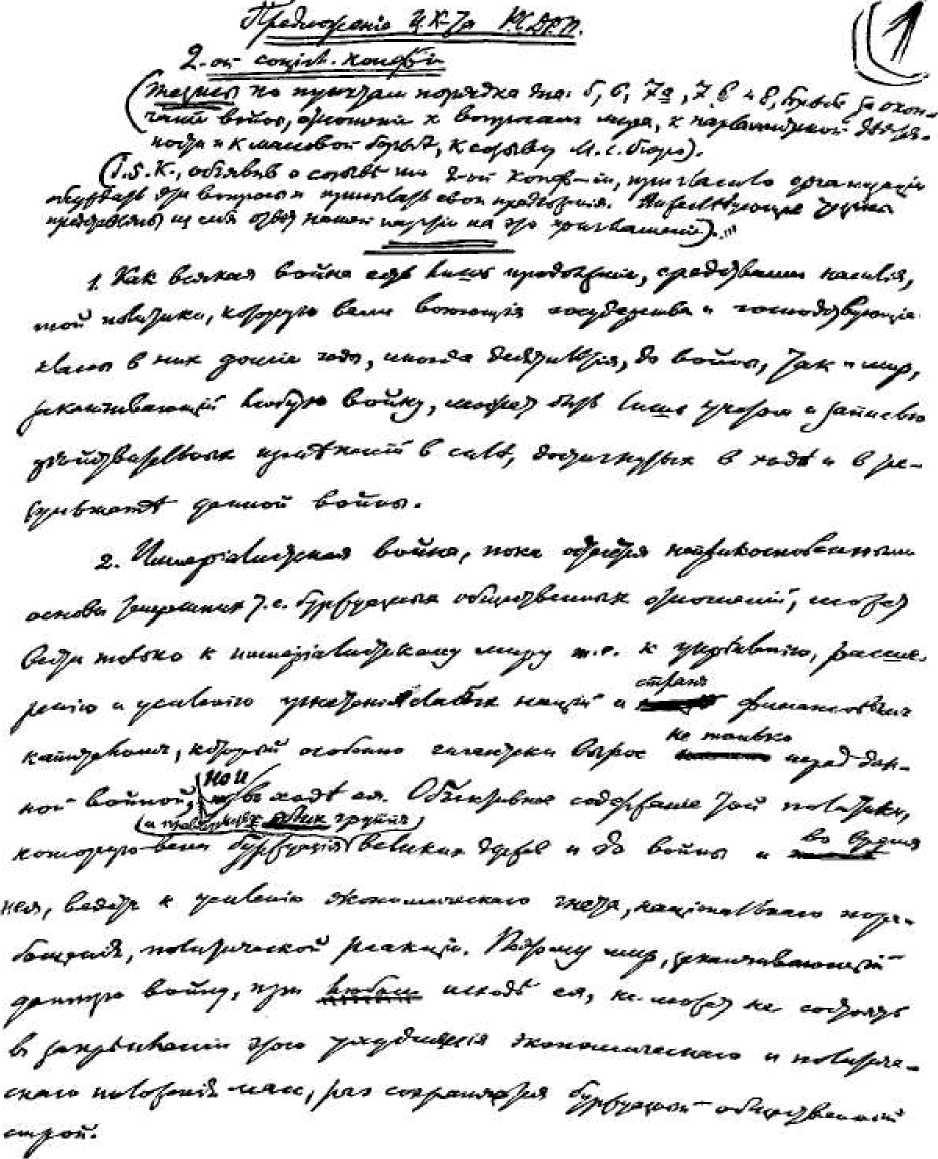 Предложенiе Ц.К-та Р.С.Д.Р.П.
1
2-ой соцiал. конф-iи
(тезисы по пунктам порядка дня: 5, 6, 7а, 7 в и 8, борьба за окон-
чанiе войны, отношенiе к вопросам мира, к парламентской деятель-
ности и к массовой борьбе, к созыву М. С. бюро).
(I.S.K., объявив о созыве 2-ой конф-iи, пригласила организацiи
обсудить эти вопросы и прислать свои предложенiя. Нижеследующие тезисы
представляют из себя ответ нашей партiи на это приглашенiе).
1. Как всякая война есть лишь продолженiе, средствами насилiя,
той политики, которую вели воюющiя государства и господствующiе
классы в них долгiе годы, иногда десятилетiя, до войны, так и мир,
заканчивающiй любую войну, может быть лишь учетом и записью
действительных изменѣнiй в силѣ, достигнутых в ходѣ и в ре-
зультатѣ данной войны.
2. Имперiалистская война, пока остаются неприкосновенными
основы теперешних, т.е. буржуазных общественных отношенiй, может
вести только к имперiалистскому миру т.е. к упрочению, расши-
рению и усилению угнетенiя слабых нацiй и
стран
финансовым
капиталом, который особенно гигантски вырос
не только
перед дан-
ной войной,
но и
в ходѣ ея. Объективное содержанiе той политики,
которую вели буржуазiя
(и правящих групп)
великих держав и до войны и
во время
нея, ведет к усиленiю экономического гнета, нацiональнаго пора-
бощенiя, политической реакцiи. Поэтому мир, заканчивающiй
данную войну, при любом исходѣ ея, не может не состоять
в закрѣпленiи этого ухудшенiя экономическаго и политиче-
скаго положенiя масс, раз сохраняется буржуазный общественный
строй.